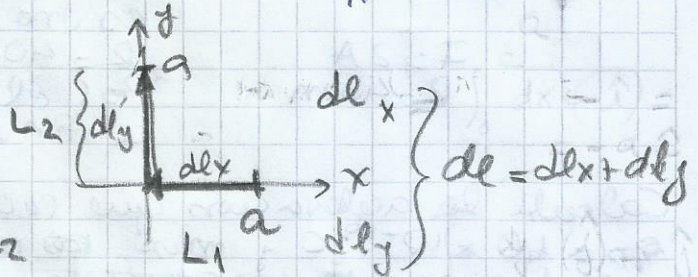 y
a
L2 { dly
dlx
x
a
L1
dlx
dly
} dl = dlx + dly
2